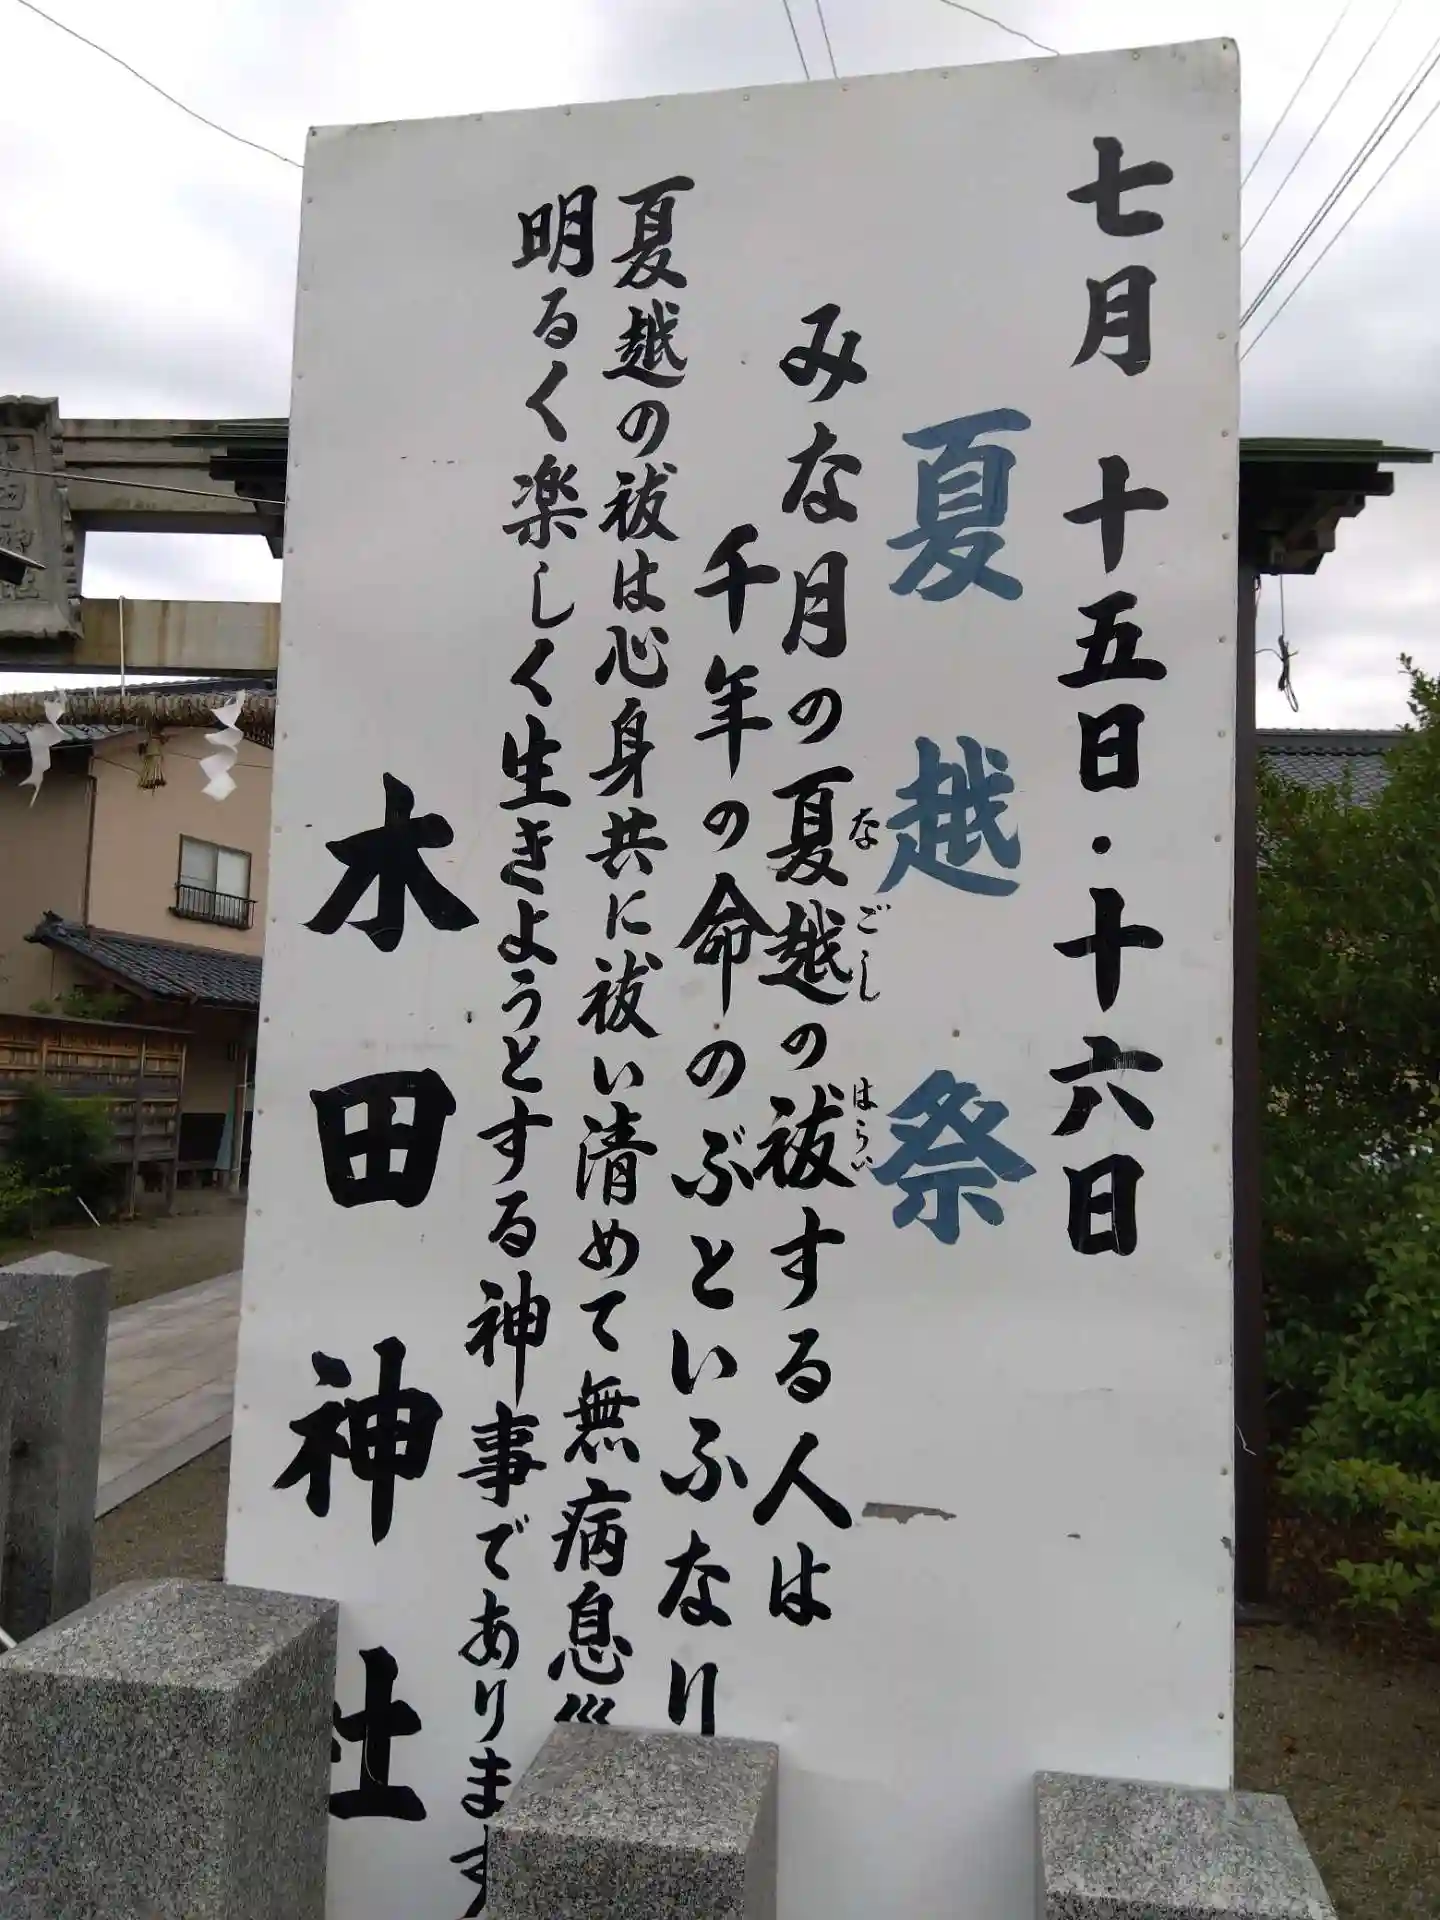 七月十五日・十六日
夏越祭
みな月の夏越の祓する人は
なごし
はらい
千年の命のぶといふなり
夏越の祓は心身共に祓い清めて無病息災
明るく楽しく生きようとする神事であります
木田神社